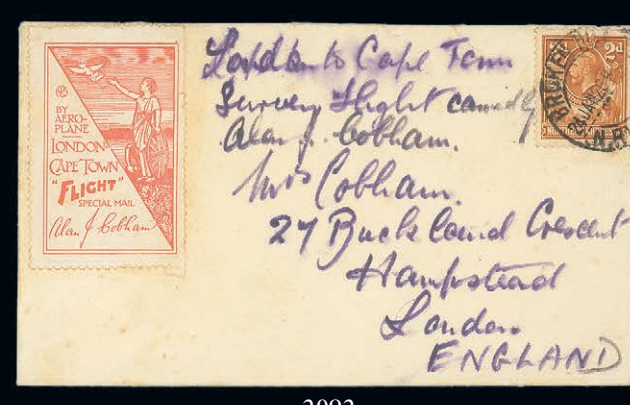 BY
AERO-
PLANE
LONDON-
CAPE TOWN
"FLIGHT"
SPECIAL MAIL
Alan J Cobham
London to Cape Town
Survey Flight
Alan J. Cobham.
Mrs Cobham.
27 Buckland Crescent
Hampstead
London
ENGLAND
2d
2092